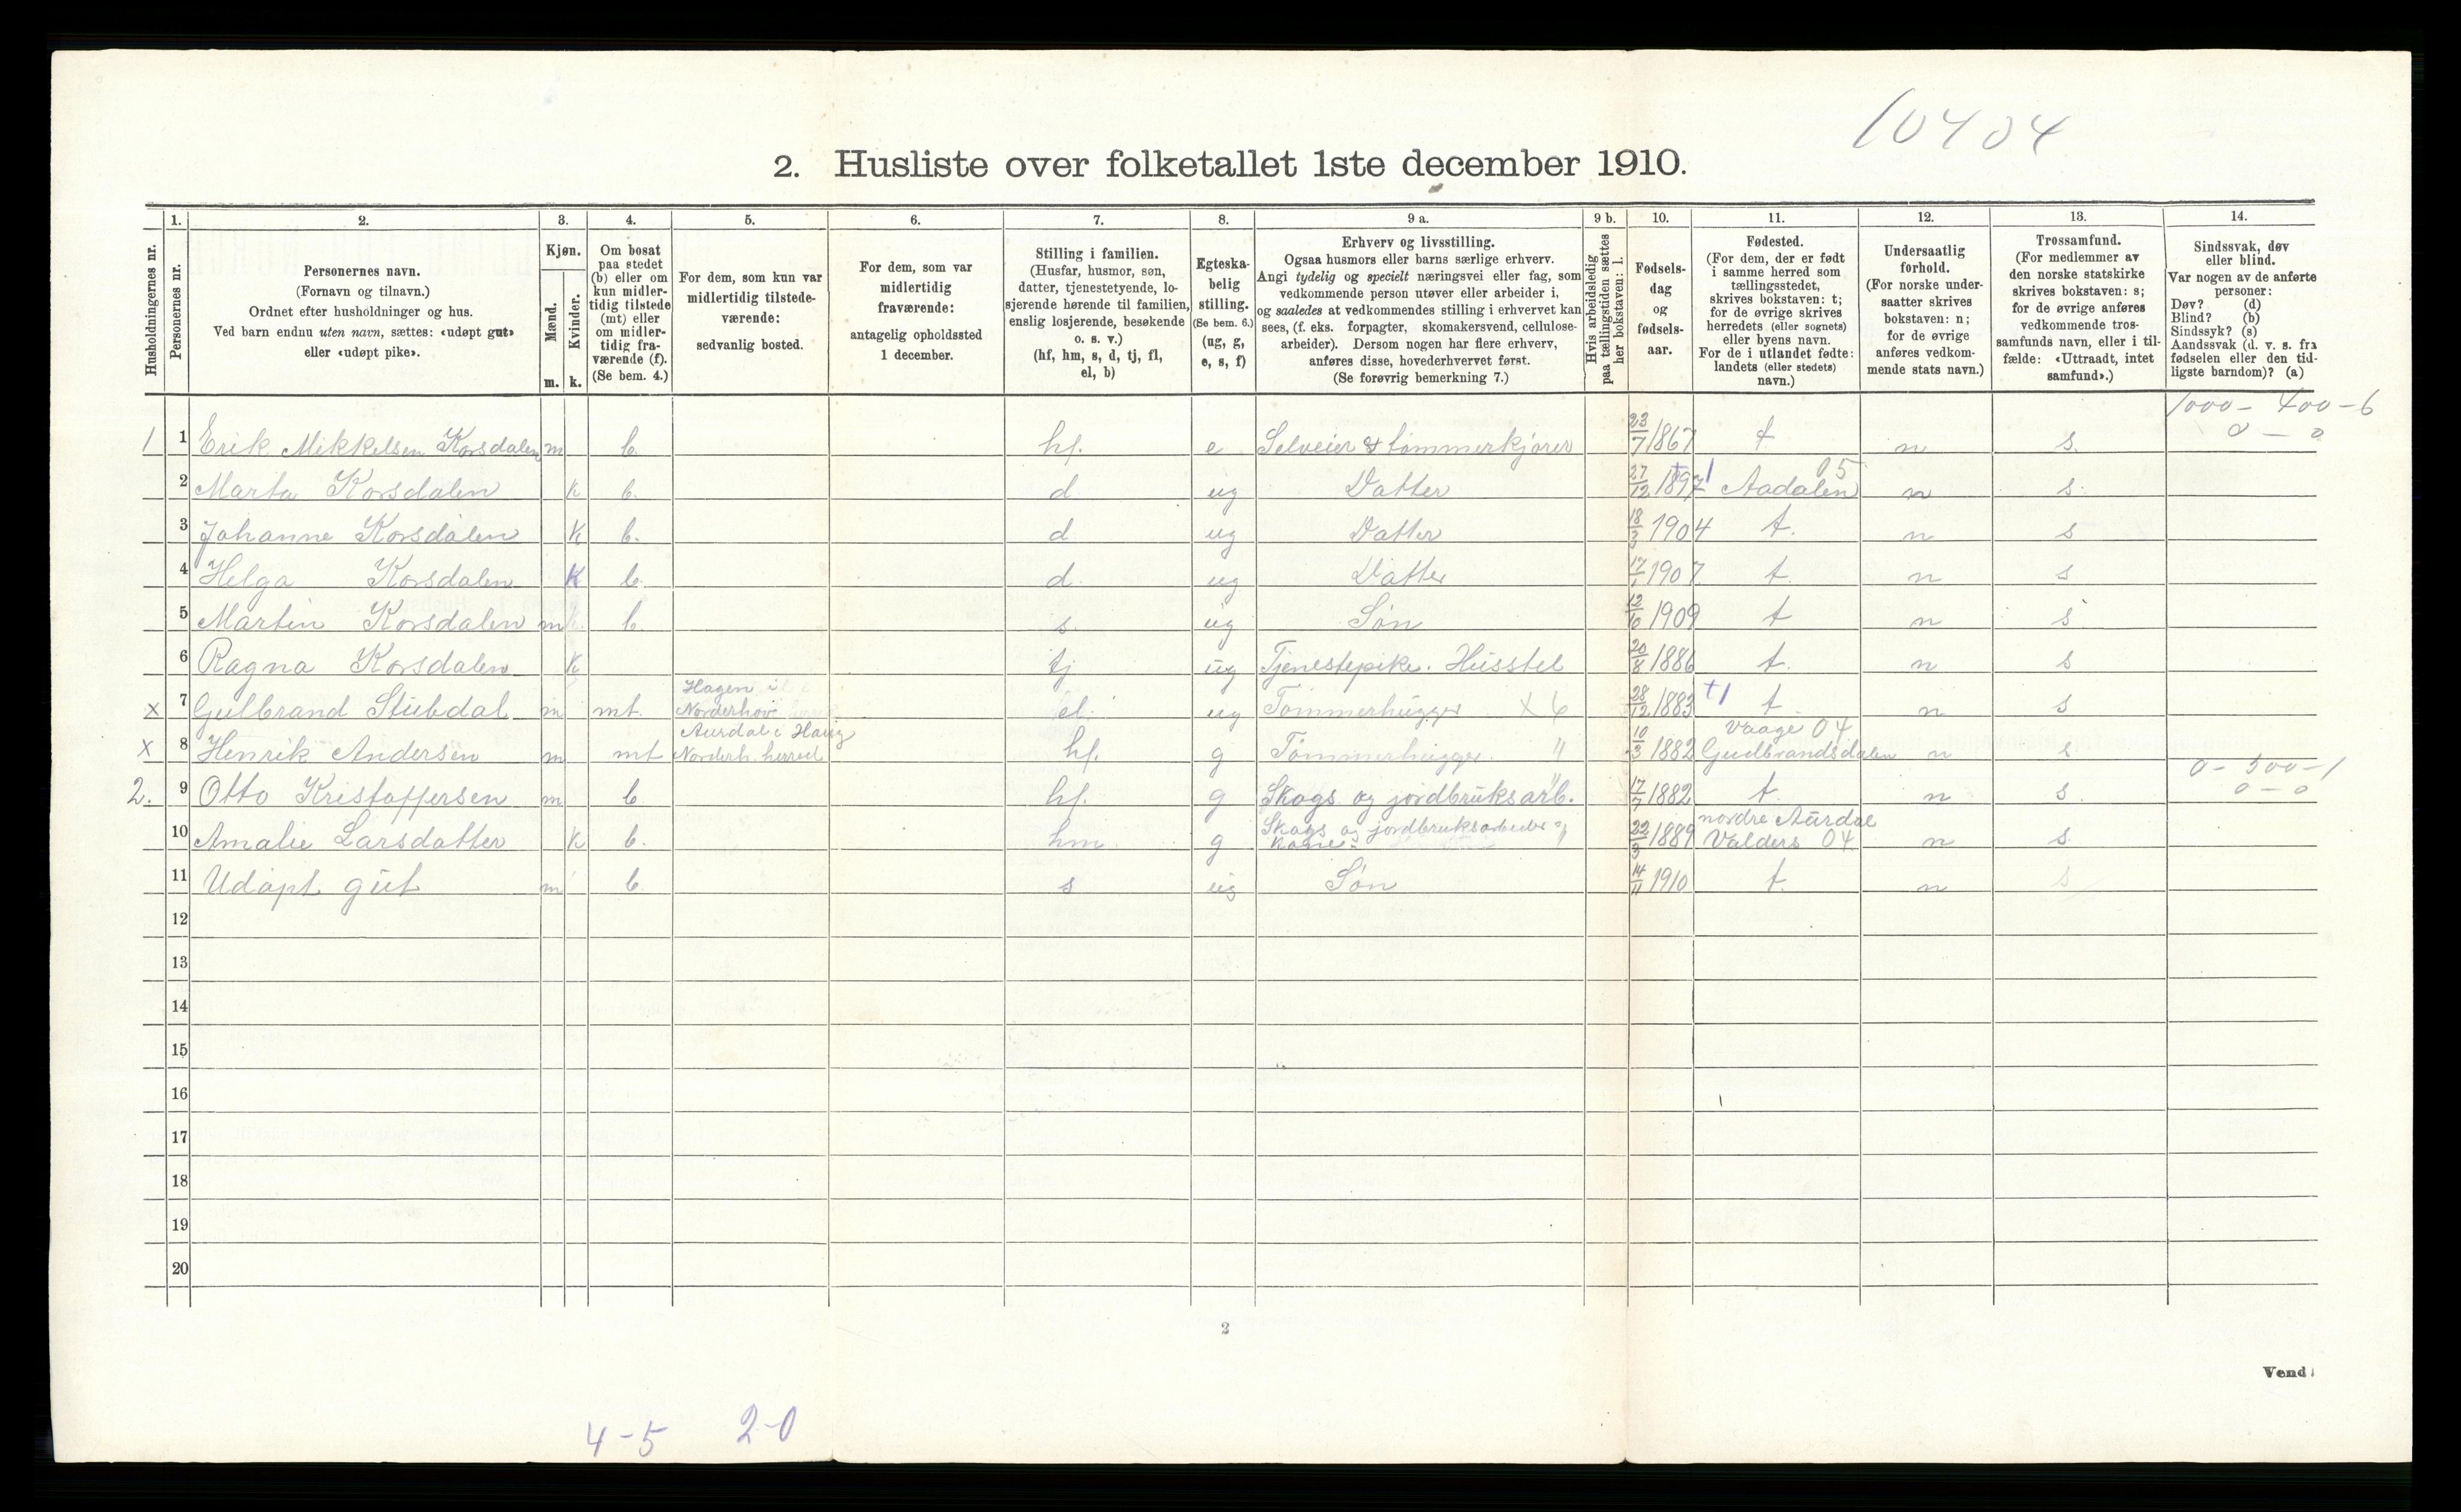 10404
2. Husliste over folketallet 1ste december 1910.
Husholdningernes nr.
1.
Personernes nr.
2.
Personernes navn.
(Fornavn og tilnavn.)
Ordnet efter husholdninger og hus.
Ved barn endnu uten navn, sættes: «udøpt gut»
eller «udøpt pike».
3.
Kjøn.
Mænd.
Kvinder.
m. k.
4.
Om bosat
paa stedet
(b) eller om
kun midler-
tidig tilstede
(mt) eller
om midler-
tidig fra-
værende (f).
(Se bem. 4.)
5.
For dem, som kun var
midlertidig tilstede-
værende:
sedvanlig bosted.
6.
For dem, som var
midlertidig
fraværende:
antagelig opholdssted
1 december.
7.
Stilling i familien.
(Husfar, husmor, søn,
datter, tjenestetyende, lo-
sjerende hørende til familien,
enslig losjerende, besøkende
o. s. v.)
(hf, hm, s, d, tj, fl,
el, b)
8.
Egteska-
belig
stilling.
(Se bem. 6.)
(ug, g,
e, s, f)
9 a.
Erhverv og livsstilling.
Ogsaa husmors eller barns særlige erhverv.
Angi tydelig og specielt næringsvei eller fag, som
vedkommende person utøver eller arbeider i,
og saaledes at vedkommendes stilling i erhvervet kan
sees, (f. eks. forpagter, skomakersvend, cellulose-
arbeider). Dersom nogen har flere erhverv,
anføres disse, hovederhvervet først.
(Se forøvrig bemerkning 7.)
9 b.
Hvis arbeidsledig
paa tællingstiden sættes
her bokstaven: l.
10.
Fødsels-
dag
og
fødsels-
aar.
11.
Fødested.
(For dem, der er født
i samme herred som
tællingsstedet,
skrives bokstaven: t;
for de øvrige skrives
herredets (eller sognets)
eller byens navn.
For de i utlandet fødte:
landets (eller stedets)
navn.)
12.
Undersaatlig
forhold.
(For norske under-
saatter skrives
bokstaven: n;
for de øvrige
anføres vedkom-
mende stats navn.)
13.
Trossamfund.
(For medlemmer av
den norske statskirke
skrives bokstaven: s;
for de øvrige anføres
vedkommende tros-
samfunds navn, eller i til-
fælde: «Uttraadt, intet
samfund».)
14.
Sindssvak, døv
eller blind.
Var nogen av de anførte
personer:
Døv? (d)
Blind? (b)
Sindssyk? (s)
Aandssvak (d. v. s. fra
fødselen eller den tid-
ligste barndom)? (a)
1000 - 400 - 6
1 1 Erik Mikkelsen Korsdalen m b. hf. e Selveier & tømmerkjører 23/7 1867 t n s. 0 - 0
2 Marta Korsdalen k b. d ug Datter 27/12 1897 Aadalen 05 n s.
3 Johanne Korsdalen k b. d ug Datter 18/3 1904 t. n s
4 Helga Korsdalen k b. d ug Datter 17/1 1907 t. n s
5 Martin Korsdalen m b s. ug Søn 12/6 1909 t n s
6 Ragna Korsdalen k tj ug Tjenestepike. Husstel 20/8 1886 t. n s
Hagen i
x 7 Gulbrand Stubdal m mt. Norderhov el. ug Tømmerhugger x 6 28/12 1883 t n s
Aurdal i Haug Vaage 04
x 8 Henrik Andersen m mt Norderh. herred hf. g Tømmerhugger. " 10/3 1882 Gudbrandsdalen n s
0 - 300 - 1
2. 9 Otto Kristoffersen m b hf. g Skogs og jordbruksarb. 17/7 1882 t. n s. 0 - 0
Skogs og jordbruksarbeider nordre Aurdal
10 Amalie Larsdatter k b. hm. g Kone 22/3 1889 Valders 04 n s.
11 Udøpt gut m b s ug Søn 14/11 1910 t. n s
12
13
14
15
16
17
18
19
20
2
Vend
4-5 2-0